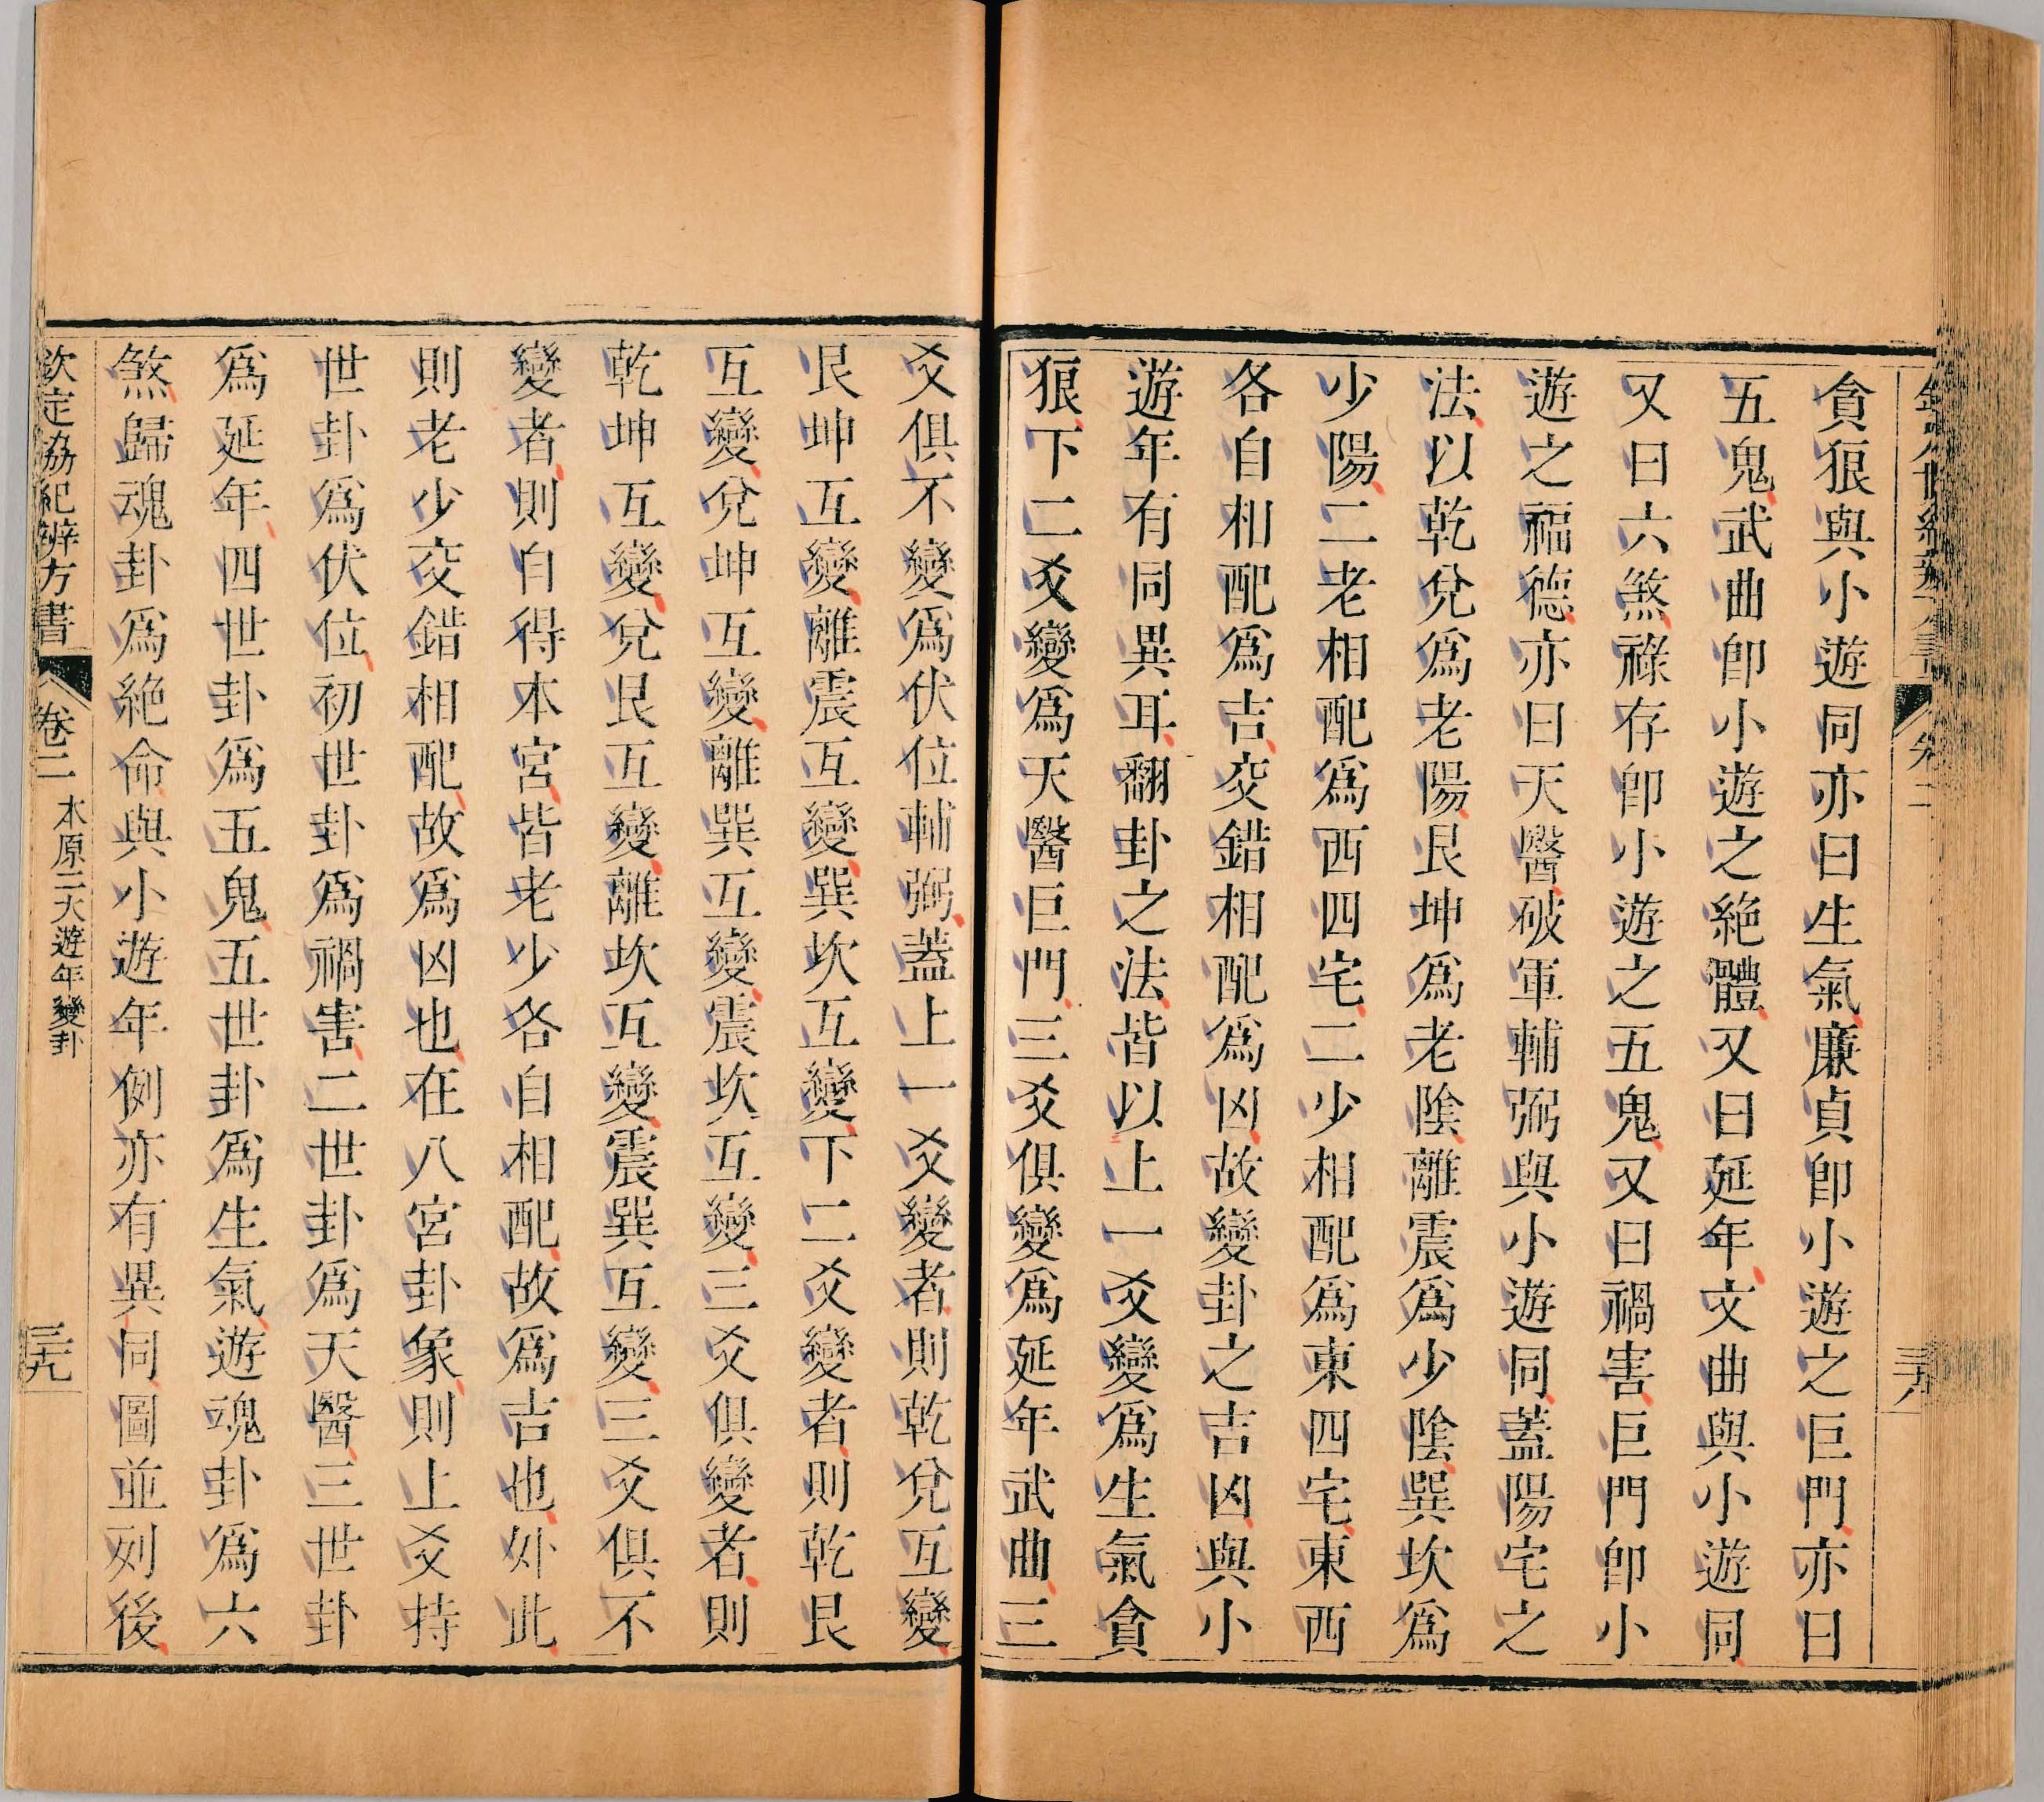 貪狼與小遊同亦曰生氣廉貞卽小遊之巨門亦曰
五鬼武曲卽小遊之絶體又曰延年文曲與小遊同
又曰六煞祿存卽小遊之五鬼又曰禍害巨門卽小
遊之福德亦曰天醫破軍輔弼與小遊同蓋陽宅之
法以乾兌爲老陽艮坤爲老陰離震爲少陰巽坎爲
少陽二老相配爲西四宅二少相配爲東四宅東西
各自相配爲吉交錯相配爲凶故變卦之吉凶與小
遊年有同異耳翻卦之法皆以上一爻變爲生氣貪
狼下二爻變爲天醫巨門三爻俱變爲延年武曲三
爻俱不變爲伏位輔弼蓋上一爻變者則乾兌互變
艮坤互變離震互變巽坎互變下二爻變者則乾艮
互變兌坤互變離巽互變震坎互變三爻俱變者則
乾坤互變兌艮互變離坎互變震巽互變三爻俱不
變者則自得本宮皆老少各自相配故爲吉也外此
則老少交錯相配故爲凶也在八宮卦象則上爻持
世卦爲伏位初世卦爲禍害二世卦爲天醫三世卦
爲延年四世卦爲五鬼五世卦爲生氣遊魂卦爲六
煞歸魂卦爲絶命與小遊年例亦有異同圖並列後
欽定協紀辨方書 卷二 本原二大遊年變卦 三九